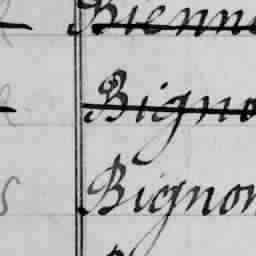 Bienn
Bigno
Bignon